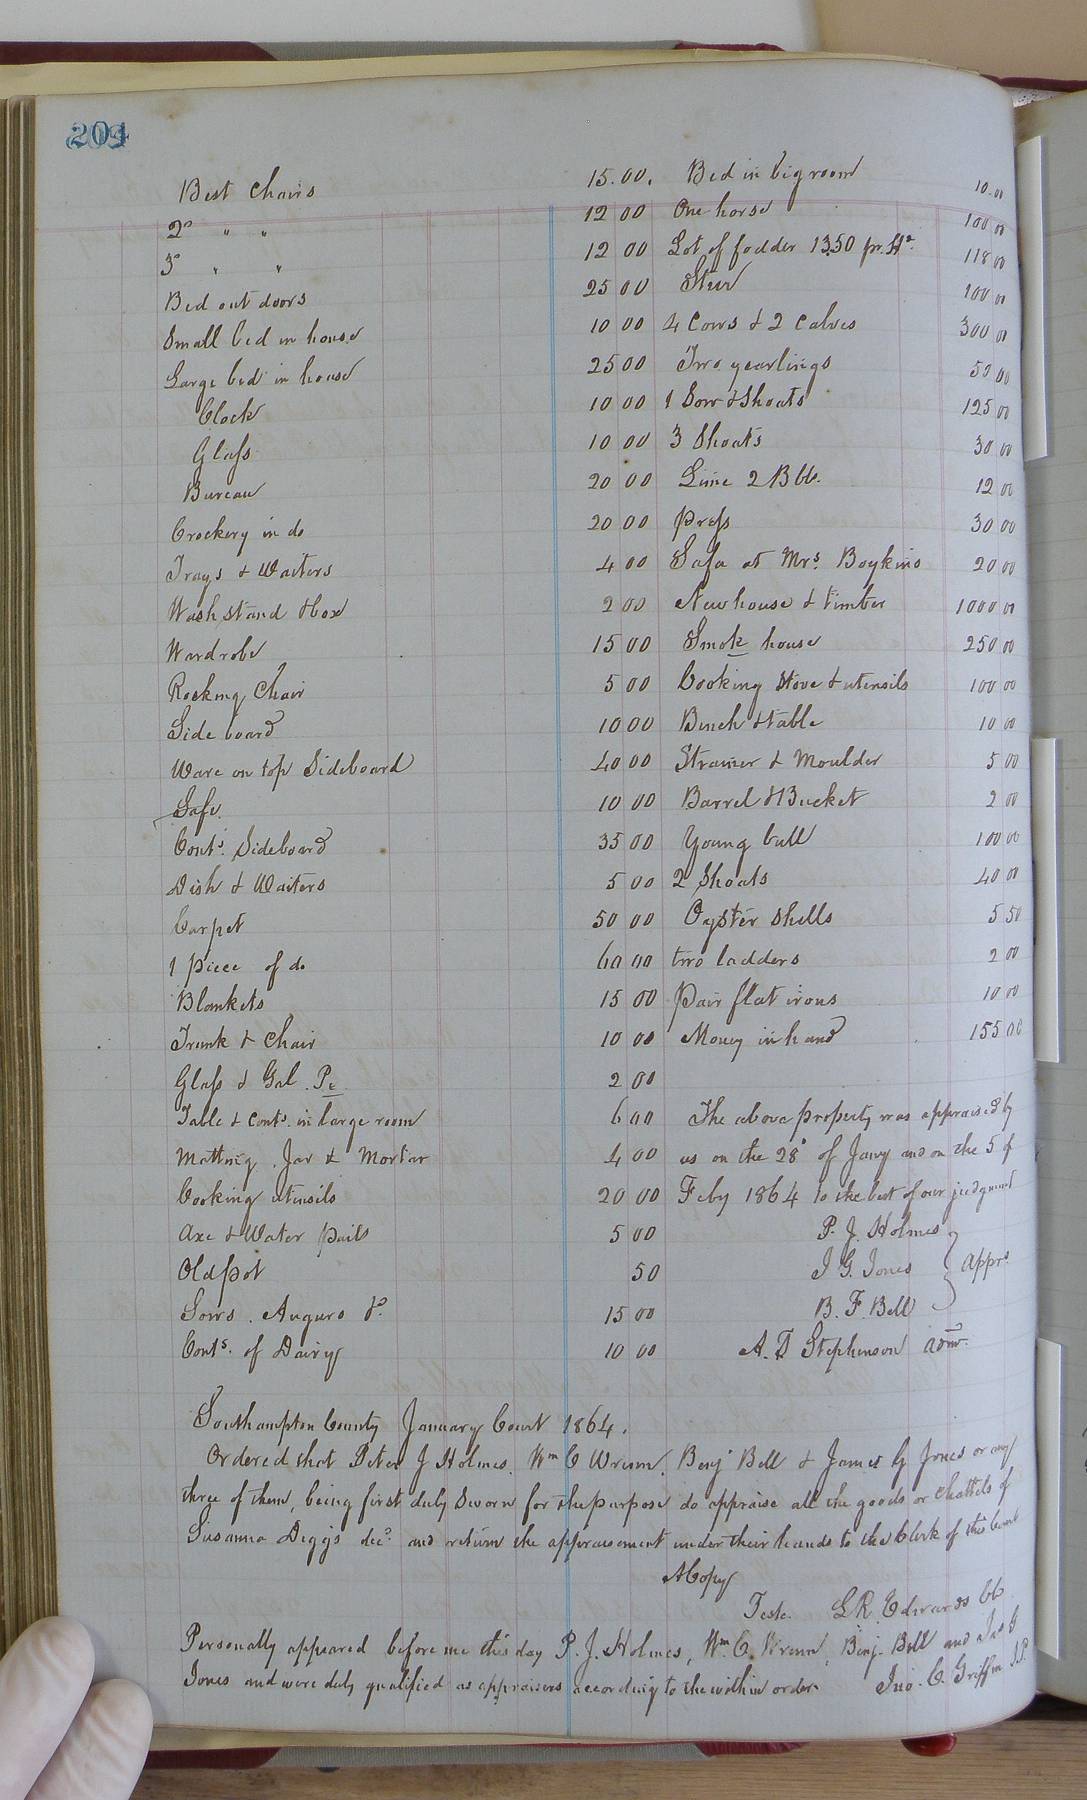 204
Best Chairs 15.00. Bed in big room 10.00
2d " " 12 00 One horse 100 00
3d " " 12 00 Lot of fodder 13.50 pr. Hd. 118 00
Bed out doors 25 00 Steer 100 00
Small bed in house 10 00 4 Cows & 2 Calves 300 00
Large bed in house 25 00 Two yearlings 50 00
Clock 10 00 1 Sow & Shoats 125 00
Glass 10 00 3 Shoats 30 00
Bureau 20 00 Lime 2 Bbls. 12 00
Crockery in do 20 00 Press 30 00
Trays & Waiters 4 00 Safe at Mrs. Boykins 20 00
Wash stand & box 2 00 New house & timber 1000 00
Wardrobe 15 00 Smok house 250 00
Rocking Chair 5 00 Cooking Stove & utensils 100 00
Side board 10 00 Bench & table 10 00
Ware on top Sideboard 40 00 Strainer & Moulder 5 00
Safe. 10 00 Barrel & Bucket 2 00
Conts. Sideboard 35 00 Young bull 100 00
Dish & Waiters 5 00 2 Shoats 40 00
Carpet 50 00 Oyster Shells 5 50
1 piece of do 60 00 two ladders 2 00
Blankets 15 00 pair flat irons 10 00
Trunk & Chair 10 00 Money in hand 155 00
Glass & Gal. Pc 2 00
Table & Conts. in large room 6 00 The above property was appraised by
Matting, Jar & Mortar 4 00 us on the 28 of Jany and on the 5 of
Cooking utensils 20 00 Feby 1864 to the best of our judgment
Axe & Water pails 5 00 P. J. Holmes
Old pot 50 J. G. Jones } Apprs.
Sows. Augurs &c. 15 00 B. F. Bell
Conts. of Dairy 10 00 A. D Stephenson admr.
Southampton County January Court 1864.
Ordered that Peter J Holmes, Wm C Wrenn, Benj Bell & James G Jones or any
three of them, being first duly Sworn for the purpose do appraise all the goods or Chattels of
Susanna Diggs decd. and return the appraisement under their hands to the Clerk of this Court
A Copy
Teste. L R Edwards Cl
Personally appeared before me this day P. J. Holmes, Wm. C. Wrenn, Benj. Bell and Jas G
Jones and were duly qualified as appraisers according to the within order. Jno. C. Griffin J.P.